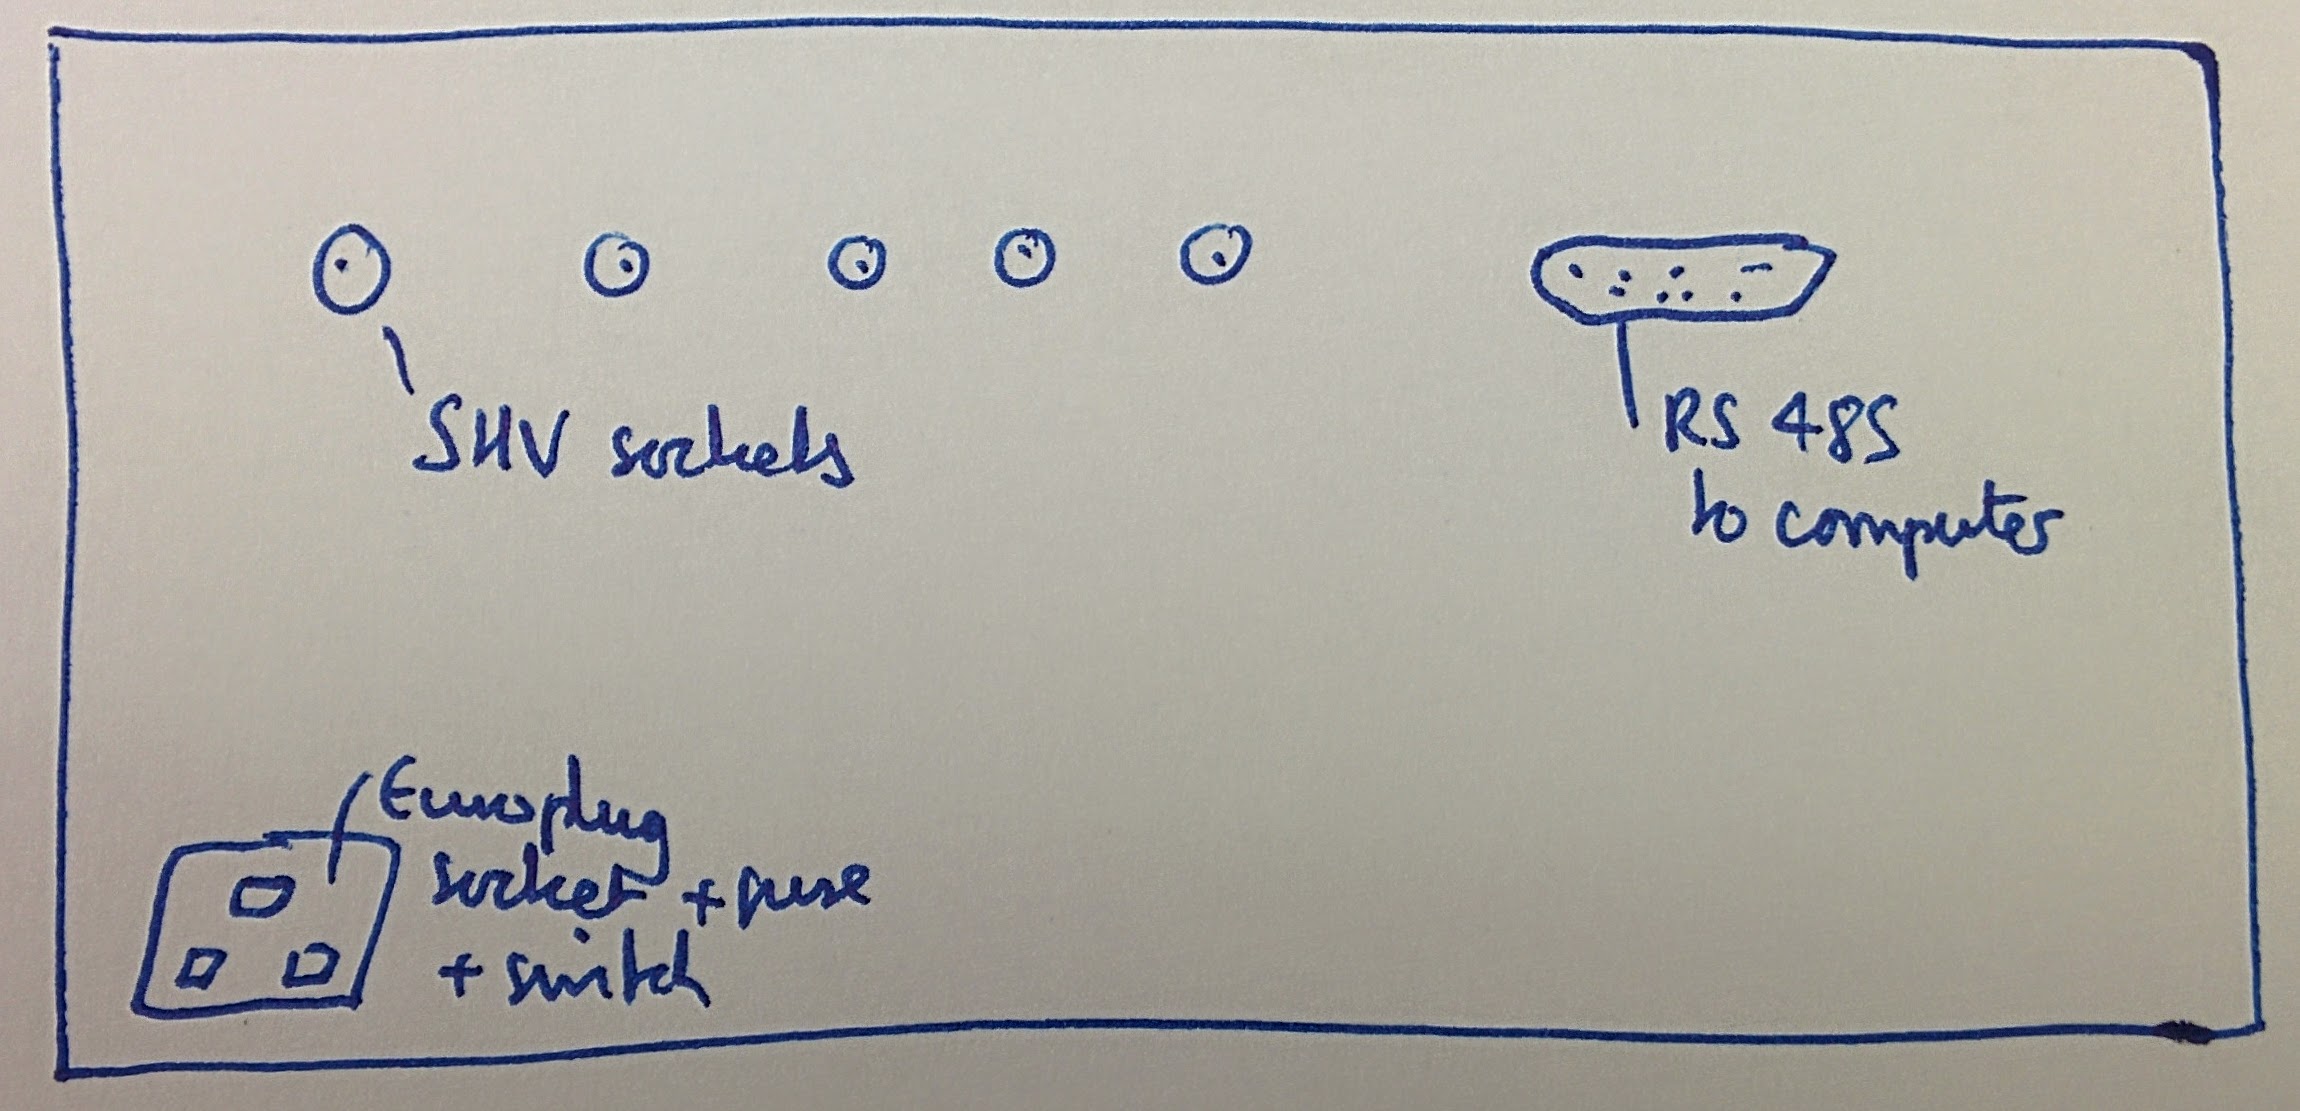 SHV sockets
RS 485
to computer
Europlug
socket + fuse
+ switch